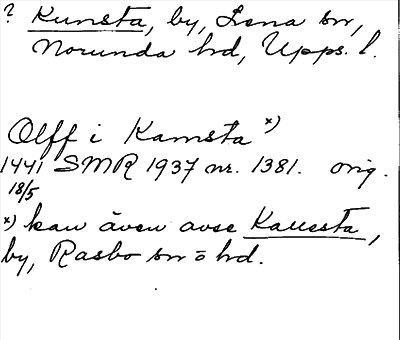 ? Kunsta, by, Lena sn,
Norunda hd, Upps. l.
Olff i Kamsta x)
1441 SMR 1937 nr. 1381. orig.
18/5
x) kan även avse Kallesta,
by, Rasbo sn o hd.